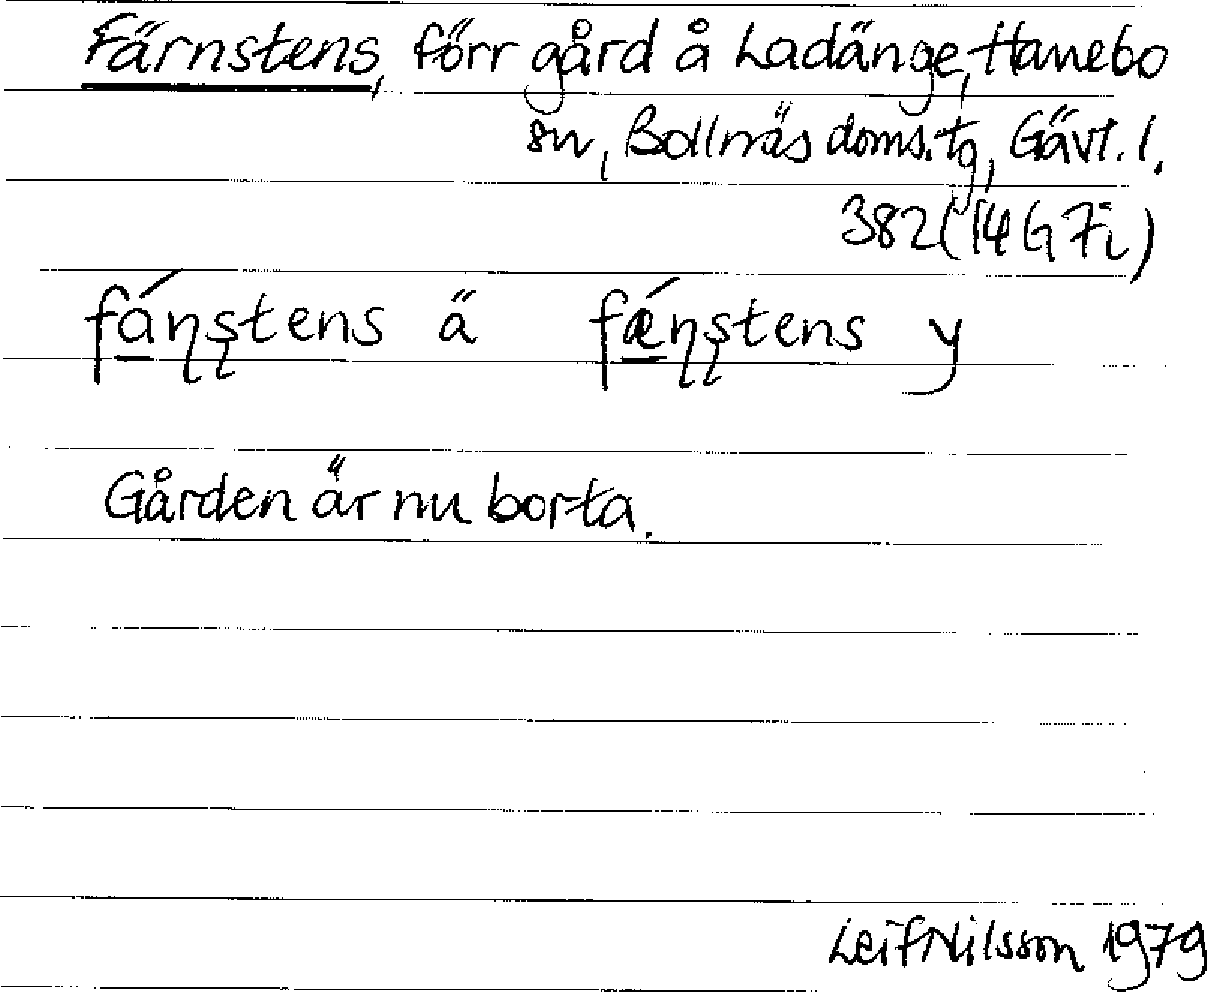 Färnstens, förr gård å Ladänge, Hanebo
sn, Bollnäs doms.tg, Gävl. l.
382 (14G 7i)
fáṇṣtens ä fǽṇṣtens y
Gården är nu borta.
Leif Nilsson 1979